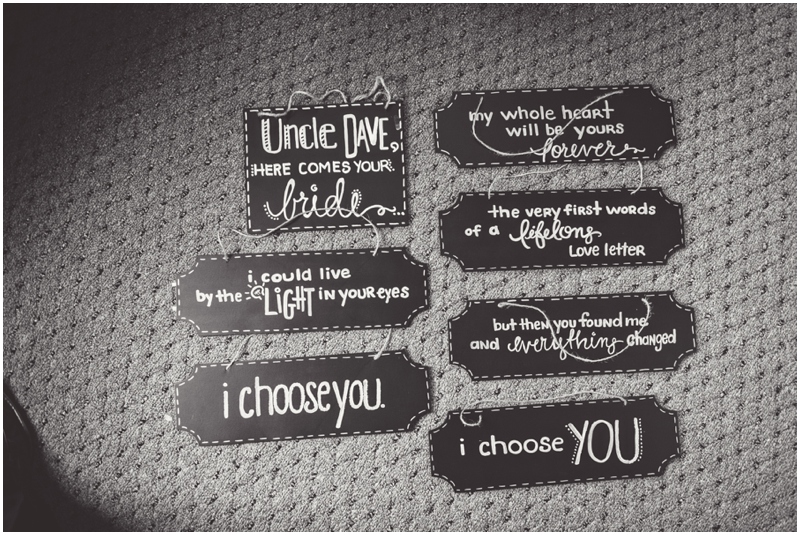 Uncle DAVE,
HERE COMES YOUR
bride...
i could live
by the LIGHT in your eyes
i choose you.
my whole heart
will be yours
forever
the very first words
of a lifelong
Love letter
but then you found me
and everything changed
i choose YOU